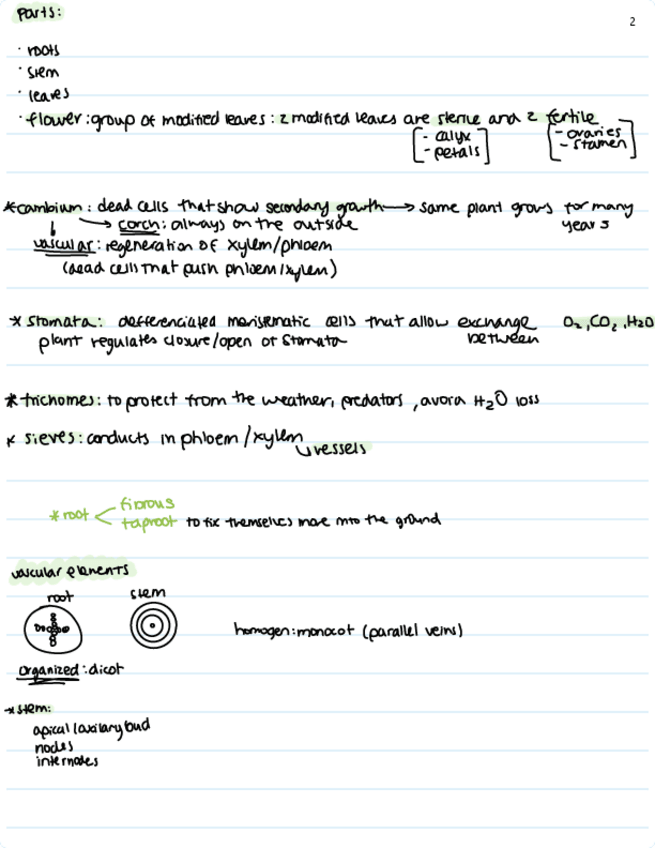 parts:
2
· roots
· stem
· leaves
· flower: group of modified leaves: 2 modified leaves are sterile and 2 fertile
[- calyx
- petals]
[- ovaries
- stamen]
*cambium: dead cells that show secondary growth → same plant grows for many years
→ corch: always on the outside
vascular: regeneration of xylem/phloem
(dead cells that push phloem/xylem)
* stomata: defferenciated merisematic cells that allow exchange between O₂, CO₂, H₂O
plant regulates closure/open of stomata
*trichomes: to protect from the weather, predators, avoid H₂O loss
* sieves: conducts in phloem/xylem
↳ vessels
*root < fibrous
taproot to fix themselves more into the ground
vascular elements
root
stem
homogen: monocot (parallel veins)
organized: dicot
→ stem:
apical/axilary bud
nodes
internodes